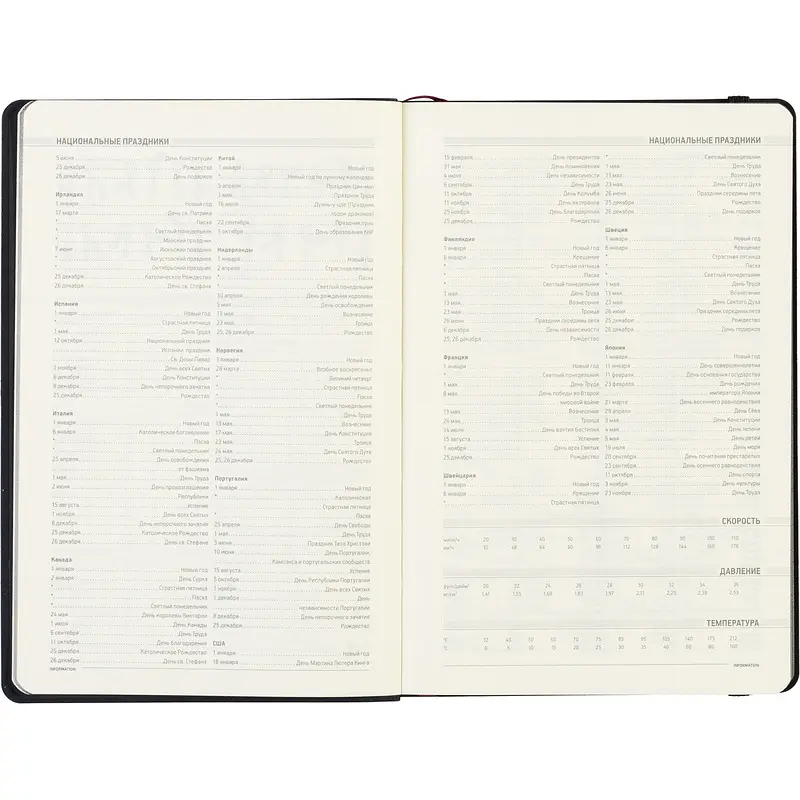 НАЦИОНАЛЬНЫЕ ПРАЗДНИКИ
5 июня День Конституции
25 декабря Рождество
26 декабря День подарков
Ирландия
1 января Новый год
17 марта День св. Патрика
* Пасха
* Светлый понедельник
* Майский праздник
* Июньский праздник
* Августовский праздник
* Октябрьский праздник
25 декабря Католическое Рождество
26 декабря День св. Стефана
Испания
1 января Новый год
* Страстная пятница
1 мая День Труда
12 октября Национальный праздник
Испании, праздник
Св. Девы Пилар
1 ноября День всех Святых
6 декабря День Конституции
8 декабря День непорочного зачатия
25 декабря Рождество
Италия
1 января Новый год
6 января Католическое богоявление
* Пасха
* Светлый понедельник
25 апреля День освобождения
от фашизма
1 мая День Труда
2 июня День провозглашения
Республики
15 августа Успение
1 ноября День всех Святых
8 декабря День непорочного зачатия
25 декабря Католическое Рождество
26 декабря День св. Стефана
Канада
1 января Новый год
2 января День Сурка
* Страстная пятница
* Пасха
* Светлый понедельник
24 мая День королевы Виктории
1 июля День Канады
6 сентября День Труда
11 октября День благодарения
25 декабря Католическое Рождество
26 декабря День св. Стефана
INFORMATION
Китай
1 января Новый год
* Новый год по лунному календарю
5 апреля Праздник Цин-мин
1 мая Праздник Труда
16 июня Дуань-у цзе (Праздник
лодок-драконов)
22 сентября Праздник луны
1 октября День образования КНР
Нидерланды
1 января Новый год
2 апреля Страстная пятница
* Пасха
* Светлый понедельник
30 апреля День рождения королевы
5 мая День освобождения
13 мая Вознесение
23 мая Троица
25, 26 декабря Рождество
Норвегия
1 января Новый год
28 марта Вербное воскресенье
* Великий четверг
* Страстная пятница
* Пасха
* Светлый понедельник
1 мая День Труда
13 мая Вознесение
17 мая День Конституции
23 мая Троица
24 мая День Святого Духа
25, 26 декабря Рождество
Португалия
1 января Новый год
* Католическая
Страстная пятница
* Пасха
25 апреля День Свободы
1 мая День Труда
3 июня Праздник Тела Христова
10 июня День Португалии,
Камоэнса и португальских сообществ
15 августа Успение
5 октября День Республики Португалии
1 ноября День всех Святых
1 декабря День
независимости Португалии
8 декабря День непорочного зачатия
25 декабря Рождество
США
1 января Новый год
18 января День Мартина Лютера Кинга
НАЦИОНАЛЬНЫЕ ПРАЗДНИКИ
15 февраля День президентов
31 мая День поминовения
4 июля День независимости
6 сентября День Труда
11 октября День Колумба
11 ноября День ветеранов
25 ноября День благодарения
25 декабря Рождество
Финляндия
1 января Новый год
6 января Крещение
* Страстная пятница
* Пасха
* Светлый понедельник
1 мая День Труда
13 мая Вознесение
23 мая Троица
26 июня Праздник середины лета
6 декабря День независимости
25, 26 декабря Рождество
Франция
1 января Новый год
* Светлый понедельник
1 мая День Труда
8 мая День победы во Второй
мировой войне
13 мая Вознесение
24 мая Троица
14 июля День взятия Бастилии
15 августа Успение
1 ноября День всех Святых
25 декабря Рождество
Швейцария
1 января Новый год
6 января Крещение
* Страстная пятница
* Светлый понедельник
1 мая День Труда
13 мая Вознесение
23 мая День Святого Духа
26 июня Праздник середины лета
25 декабря Рождество
26 декабря День подарков
Швеция
1 января Новый год
6 января Крещение
* Страстная пятница
* Пасха
* Светлый понедельник
1 мая День Труда
13 мая Вознесение
23 мая День Святого Духа
26 июня Праздник середины лета
25 декабря Рождество
26 декабря День подарков
Япония
1 января Новый год
11 января День совершеннолетия
11 февраля День основания государства
23 февраля День рождения
императора Японии
21 марта День весеннего равноденствия
29 апреля День Сёва
3 мая День Конституции
4 мая День зелени
5 мая День детей
19 июля День моря
20 сентября День почитания престарелых
23 сентября День осеннего равноденствия
11 октября День спорта
3 ноября День культуры
23 ноября День Труда
СКОРОСТЬ
мили/ч 20 30 40 50 60 70 80 90 100 110
км/ч 32 48 64 80 96 112 128 144 160 176
ДАВЛЕНИЕ
фунт/дюйм² 20 22 24 26 28 30 32 34 36
кг/см² 1,41 1,55 1,69 1,83 1,97 2,11 2,25 2,39 2,53
ТЕМПЕРАТУРА
°F 32 40 50 60 70 75 85 95 105 140 175 212
°C 0 5 10 15 20 25 30 35 40 60 80 100
INFORMATION